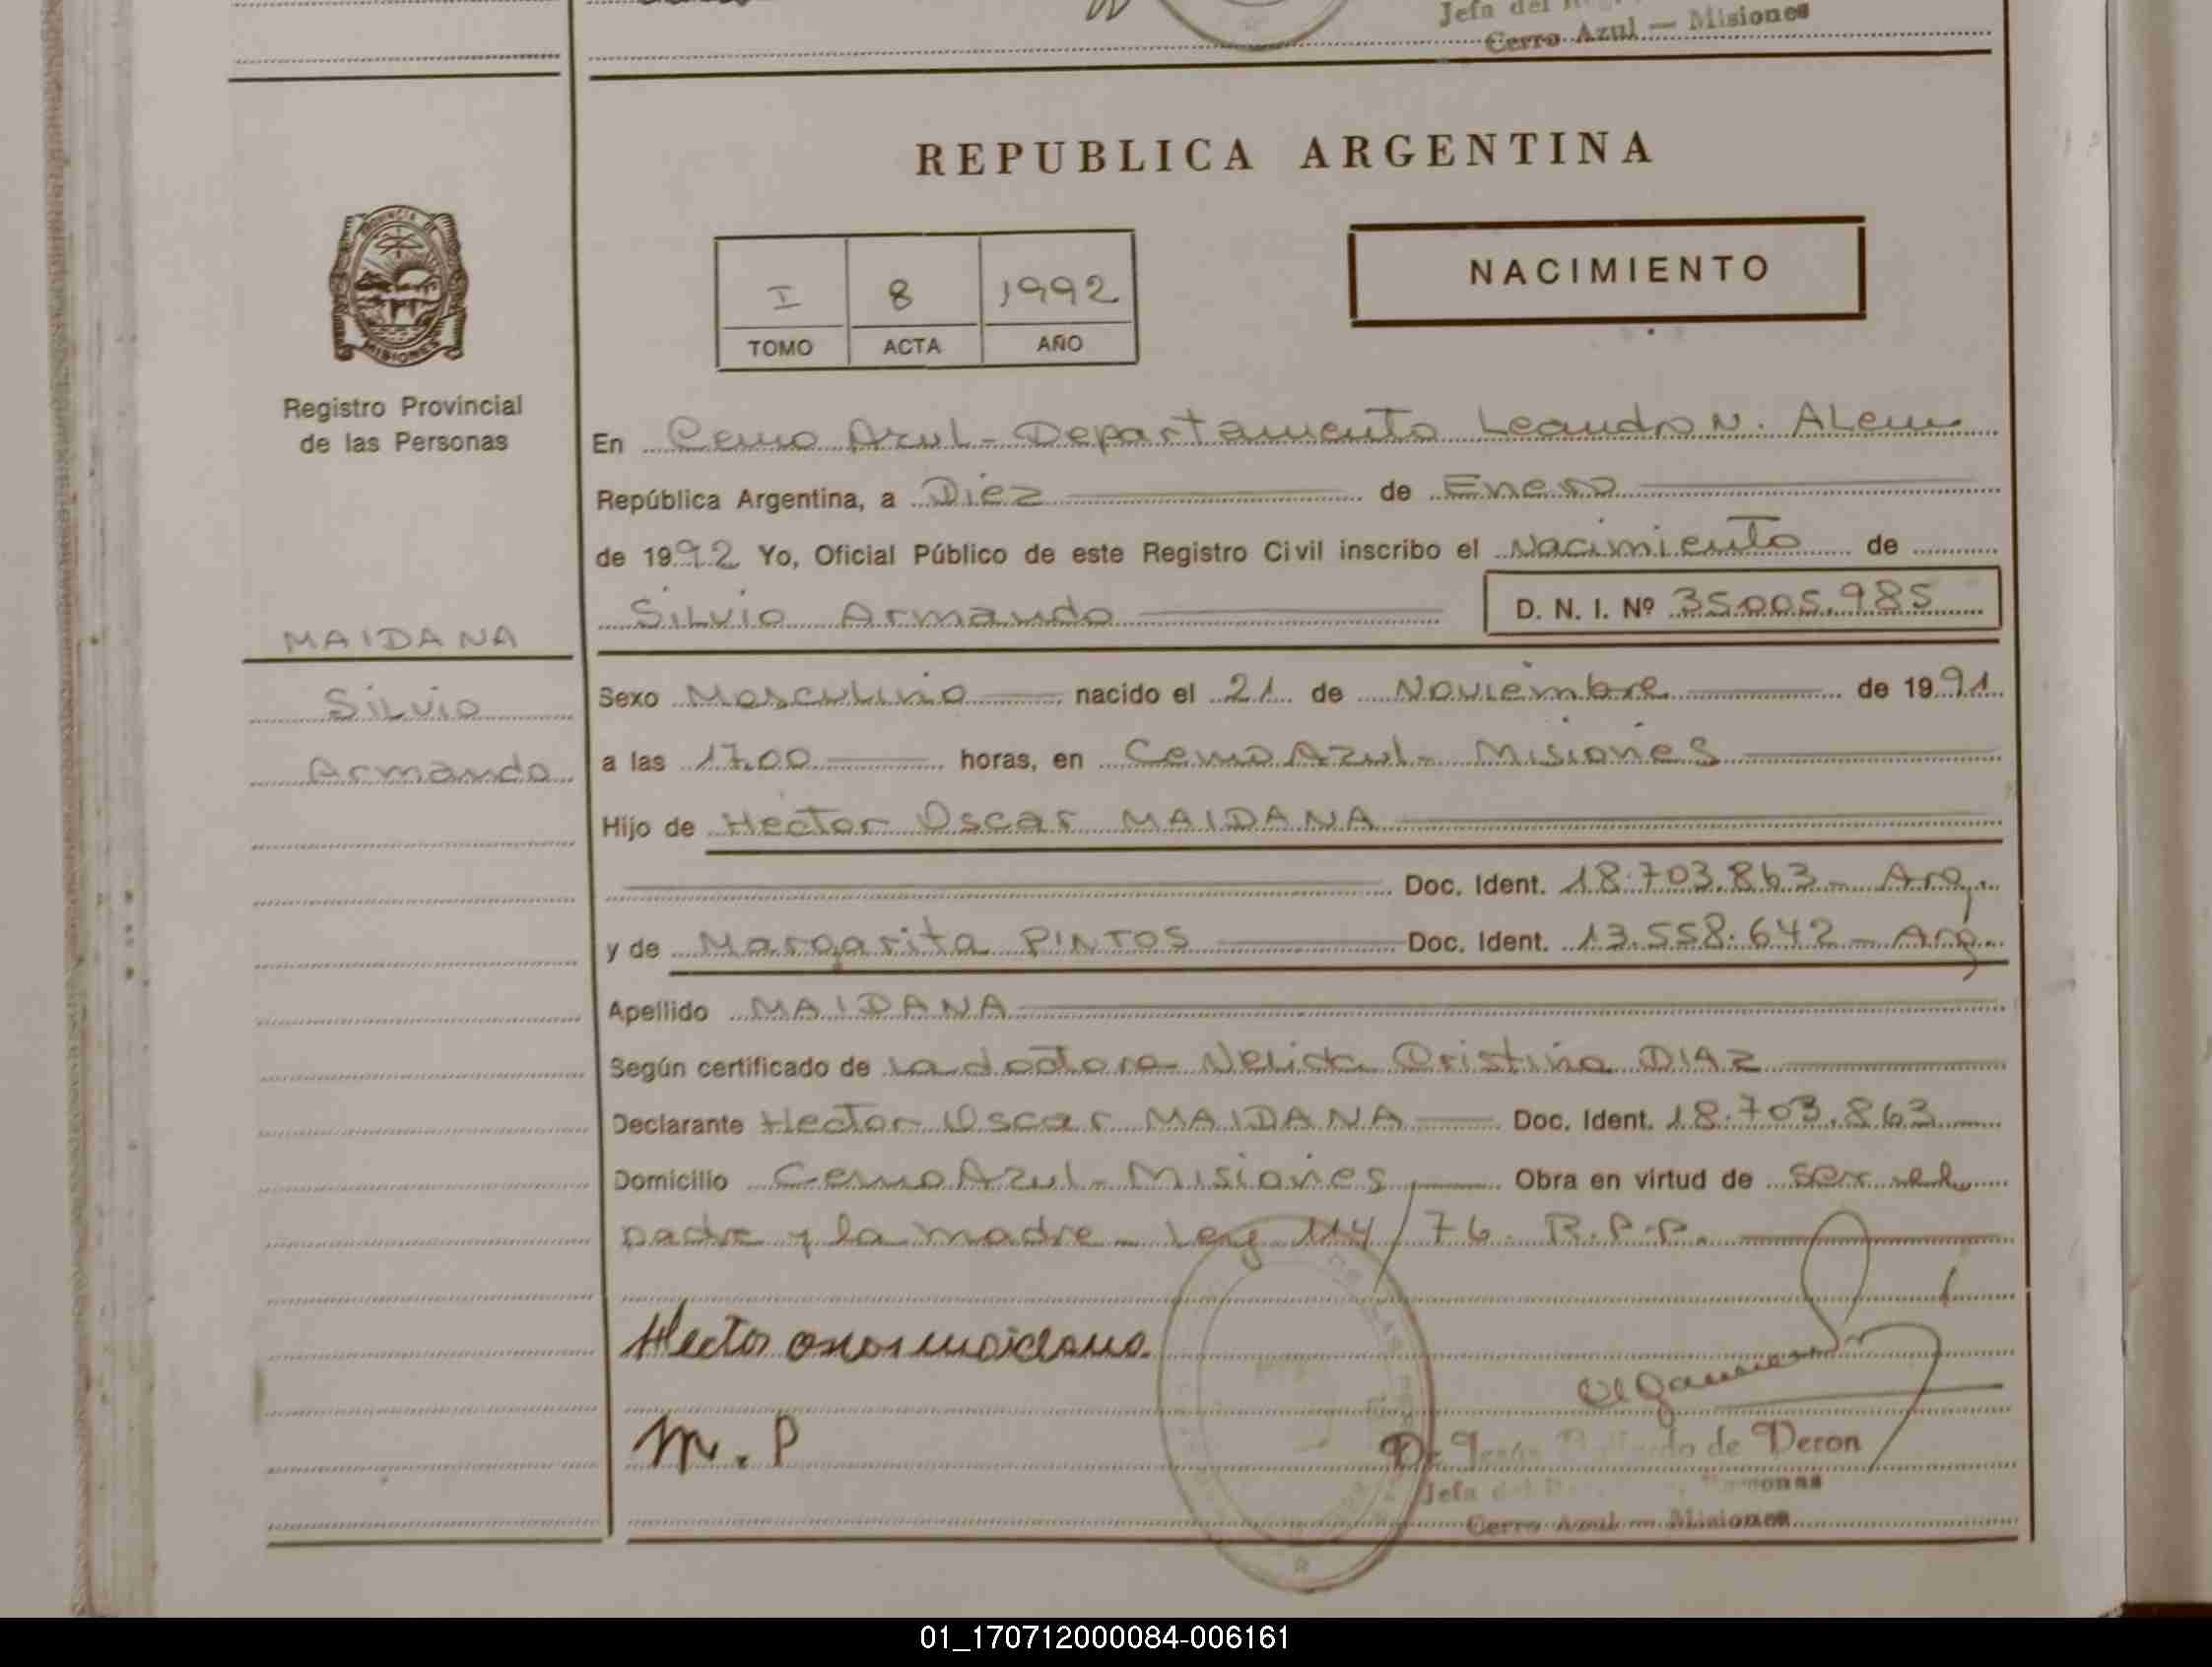 Jefa del
Cerro Azul — Misiones
REPUBLICA ARGENTINA
PROVINCIA DE
MISIONES
Registro Provincial
de las Personas
I 8 1992
TOMO ACTA AÑO
NACIMIENTO
En Cerro Azul - Departamento Leandro N. Alem
República Argentina, a Diez de Enero
de 1992 Yo, Oficial Público de este Registro Civil inscribo el Nacimiento de
Silvio Armando D. N. I. Nº 35.005.985
MAIDANA
Silvio
Armando
Sexo Masculino nacido el 21 de Noviembre de 1991
a las 17,00 horas, en Cerro Azul - Misiones
Hijo de Hector Oscar MAIDANA
Doc. Ident. 18.703.863 - Arg.
y de Margarita PINTOS Doc. Ident. 13.558.642 - Arg.
Apellido MAIDANA
Según certificado de la doctora Nelida Cristina DIAZ
Declarante Hector Oscar MAIDANA Doc. Ident. 18.703.863
Domicilio Cerro Azul - Misiones Obra en virtud de ser el
padre y la madre - Ley 114/76. R.P.P.
Hector oscar maidana.
M. P
de Deron
Jefa del
Cerro Azul — Misiones
01_170712000084-006161